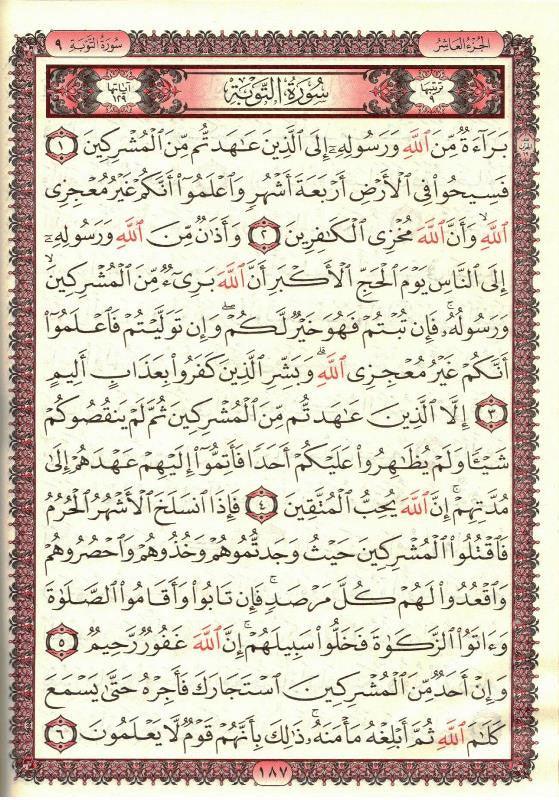 الجزء العاشر
سورة التوبة ٩
ترتيبها ٩
سورة التوبة
آياتها ١٢٩
بَرَآءَةٌ مِّنَ ٱللَّهِ وَرَسُولِهِۦٓ إِلَى ٱلَّذِينَ عَٰهَدتُّم مِّنَ ٱلْمُشْرِكِينَ ١
فَسِيحُوا۟ فِى ٱلْأَرْضِ أَرْبَعَةَ أَشْهُرٍ وَٱعْلَمُوٓا۟ أَنَّكُمْ غَيْرُ مُعْجِزِى
ٱللَّهِ ۙ وَأَنَّ ٱللَّهَ مُخْزِى ٱلْكَٰفِرِينَ ٢ وَأَذَٰنٌ مِّنَ ٱللَّهِ وَرَسُولِهِۦٓ
إِلَى ٱلنَّاسِ يَوْمَ ٱلْحَجِّ ٱلْأَكْبَرِ أَنَّ ٱللَّهَ بَرِىٓءٌ مِّنَ ٱلْمُشْرِكِينَ ۙ
وَرَسُولُهُۥ ۚ فَإِن تُبْتُمْ فَهُوَ خَيْرٌ لَّكُمْ ۖ وَإِن تَوَلَّيْتُمْ فَٱعْلَمُوٓا۟
أَنَّكُمْ غَيْرُ مُعْجِزِى ٱللَّهِ ۗ وَبَشِّرِ ٱلَّذِينَ كَفَرُوا۟ بِعَذَابٍ أَلِيمٍ
٣ إِلَّا ٱلَّذِينَ عَٰهَدتُّم مِّنَ ٱلْمُشْرِكِينَ ثُمَّ لَمْ يَنقُصُوكُمْ
شَيْـًٔا وَلَمْ يُظَٰهِرُوا۟ عَلَيْكُمْ أَحَدًا فَأَتِمُّوٓا۟ إِلَيْهِمْ عَهْدَهُمْ إِلَىٰ
مُدَّتِهِمْ ۚ إِنَّ ٱللَّهَ يُحِبُّ ٱلْمُتَّقِينَ ٤ فَإِذَا ٱنسَلَخَ ٱلْأَشْهُرُ ٱلْحُرُمُ
فَٱقْتُلُوا۟ ٱلْمُشْرِكِينَ حَيْثُ وَجَدتُّمُوهُمْ وَخُذُوهُمْ وَٱحْصُرُوهُمْ
وَٱقْعُدُوا۟ لَهُمْ كُلَّ مَرْصَدٍ ۚ فَإِن تَابُوا۟ وَأَقَامُوا۟ ٱلصَّلَوٰةَ
وَءَاتَوُا۟ ٱلزَّكَوٰةَ فَخَلُّوا۟ سَبِيلَهُمْ ۚ إِنَّ ٱللَّهَ غَفُورٌ رَّحِيمٌ ٥
وَإِنْ أَحَدٌ مِّنَ ٱلْمُشْرِكِينَ ٱسْتَجَارَكَ فَأَجِرْهُ حَتَّىٰ يَسْمَعَ
كَلَٰمَ ٱللَّهِ ثُمَّ أَبْلِغْهُ مَأْمَنَهُۥ ۚ ذَٰلِكَ بِأَنَّهُمْ قَوْمٌ لَّا يَعْلَمُونَ ٦
١٨٧